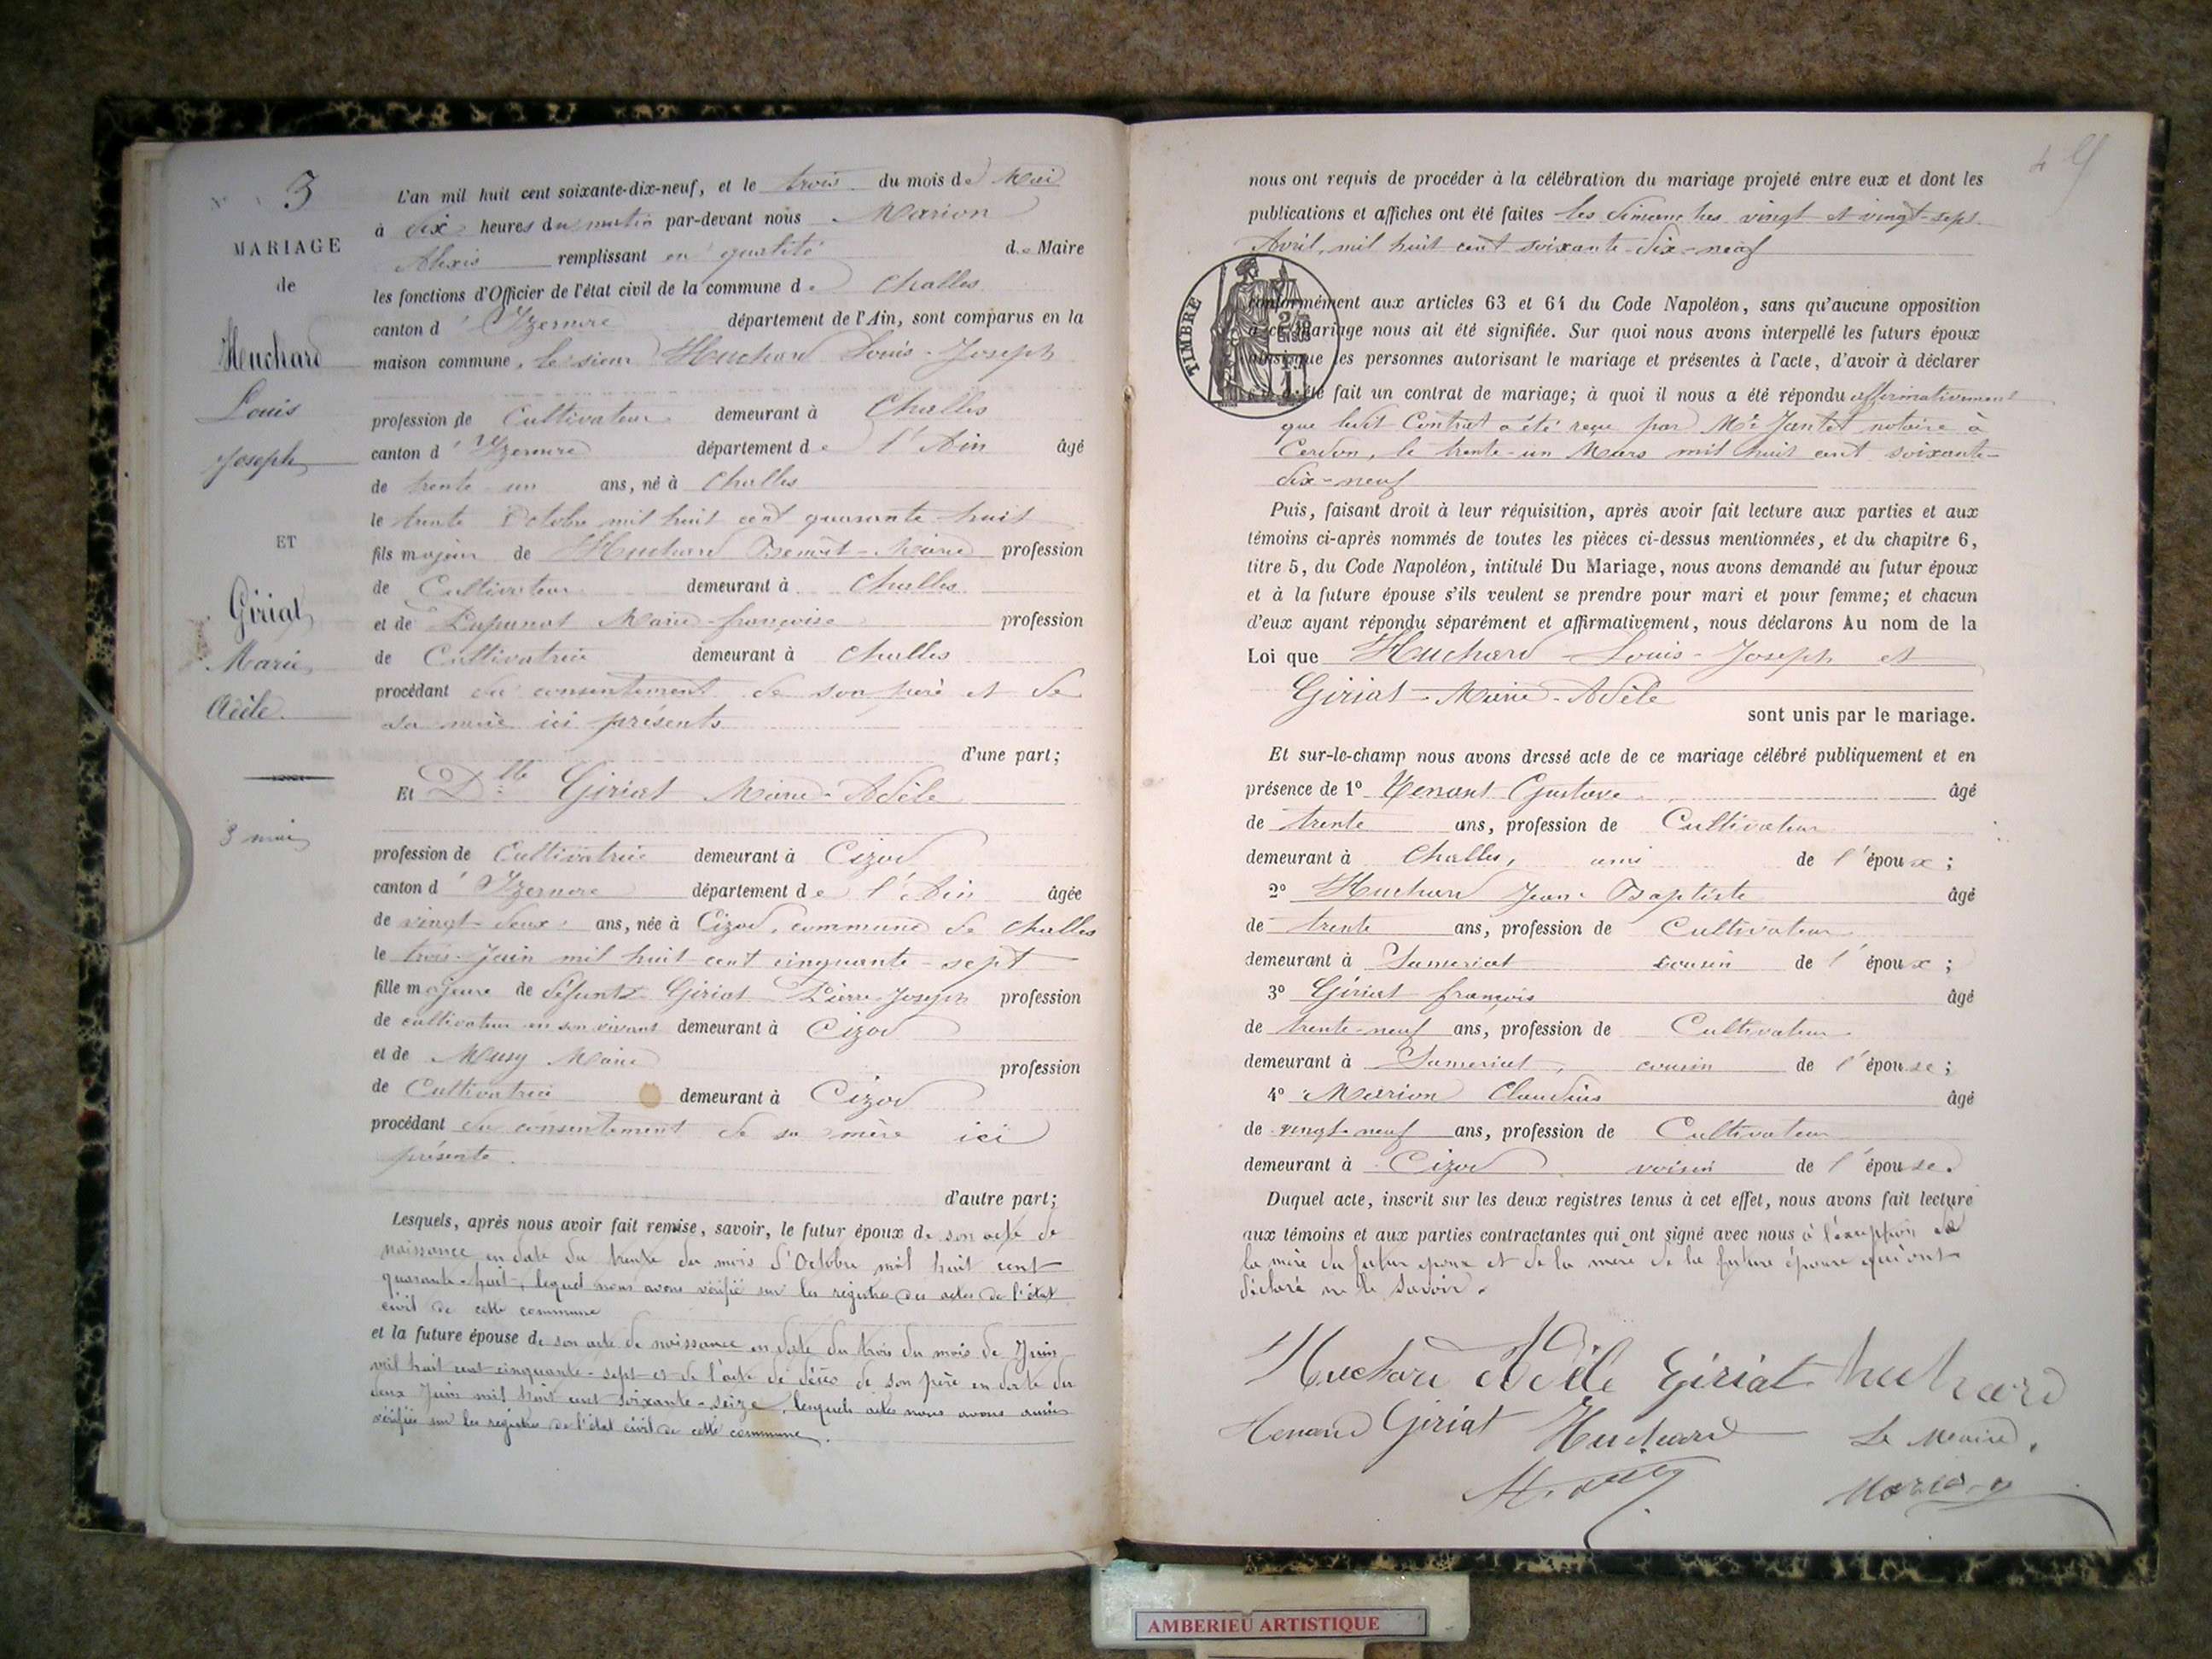 3
MARIAGE
de
Huchard
Louis
Joseph
ET
Giriat
Marie
Adèle
3 mai
L'an mil huit cent soixante-dix-neuf, et le trois du mois de Mai
à dix heures du matin par-devant nous Marion
Alexis remplissant en qualité de Maire
les fonctions d'Officier de l'état civil de la commune de Challes
canton d'Izernore département de l'Ain, sont comparus en la
maison commune, le sieur Huchard Louis-Joseph
profession de Cultivateur demeurant à Challes
canton d'Izernore département de l'Ain âgé
de trente un ans, né à Challes
le trente Octobre mil huit cent quarante huit
fils majeur de Huchard Benoît-Marie profession
de Cultivateur demeurant à Challes
et de Marie-françoise profession
de Cultivatrice demeurant à Challes
procédant du consentement de son père et de
sa mère ici présents
d'une part;
Et Dlle Giriat Marie-Adèle
profession de Cultivatrice demeurant à Cizod
canton d'Izernore département de l'Ain âgée
de vingt-deux ans, née à Cizod, commune de Challes
le trois Juin mil huit cent cinquante-sept
fille majeure de défunt Giriat Pierre-Joseph profession
de cultivateur en son vivant demeurant à Cizod
et de Musy Marie profession
de Cultivatrice demeurant à Cizod
procédant du consentement de sa mère ici
présente.
d'autre part;
Lesquels, après nous avoir fait remise, savoir, le futur époux de son acte de
naissance en date du trente du mois d'Octobre mil huit cent
quarante-huit, lequel nous avons vérifié sur les registres des actes de l'état
civil de cette commune
et la future épouse de son acte de naissance en date du trois du mois de Juin
mil huit cent cinquante-sept et de l'acte de décès de son père en date du
deux Juin mil huit cent soixante-seize, lesquels actes nous avons aussi
vérifiés sur les registres de l'état civil de cette commune.
nous ont requis de procéder à la célébration du mariage projeté entre eux et dont les
publications et affiches ont été faites les dimanches vingt et vingt-sept
Avril mil huit cent soixante-dix-neuf
TIMBRE
conformément aux articles 63 et 64 du Code Napoléon, sans qu'aucune opposition
à ce mariage nous ait été signifiée. Sur quoi nous avons interpellé les futurs époux
ainsi que les personnes autorisant le mariage et présentes à l'acte, d'avoir à déclarer
été fait un contrat de mariage; à quoi il nous a été répondu affirmativement
que ledit Contrat a été reçu par Me Jantet notaire à
Cerdon, le trente-un Mars mil huit cent soixante-
dix-neuf
Puis, faisant droit à leur réquisition, après avoir fait lecture aux parties et aux
témoins ci-après nommés de toutes les pièces ci-dessus mentionnées, et du chapitre 6,
titre 5, du Code Napoléon, intitulé Du Mariage, nous avons demandé au futur époux
et à la future épouse s'ils veulent se prendre pour mari et pour femme; et chacun
d'eux ayant répondu séparément et affirmativement, nous déclarons Au nom de la
Loi que Huchard Louis-Joseph et
Giriat-Marie-Adèle
sont unis par le mariage.
Et sur-le-champ nous avons dressé acte de ce mariage célébré publiquement et en
présence de 1º Gustave âgé
de trente ans, profession de Cultivateur
demeurant à Challes, ami de l'époux;
2º Huchard Jean-Baptiste âgé
de trente ans, profession de Cultivateur
demeurant à Samériat cousin de l'époux;
3º Giriat françois âgé
de trente-neuf ans, profession de Cultivateur
demeurant à Samériat, cousin de l'épouse;
4º Marion Claudius âgé
de vingt-neuf ans, profession de Cultivateur
demeurant à Cizod voisin de l'épouse.
Duquel acte, inscrit sur les deux registres tenus à cet effet, nous avons fait lecture
aux témoins et aux parties contractantes qui ont signé avec nous à l'exception de
la mère du futur époux et de la mère de la future épouse qui ont
déclaré ne le savoir.
Huchard Adèle Giriat huchard
Giriat Huchard Le Maire,
Marion
AMBERIEU ARTISTIQUE